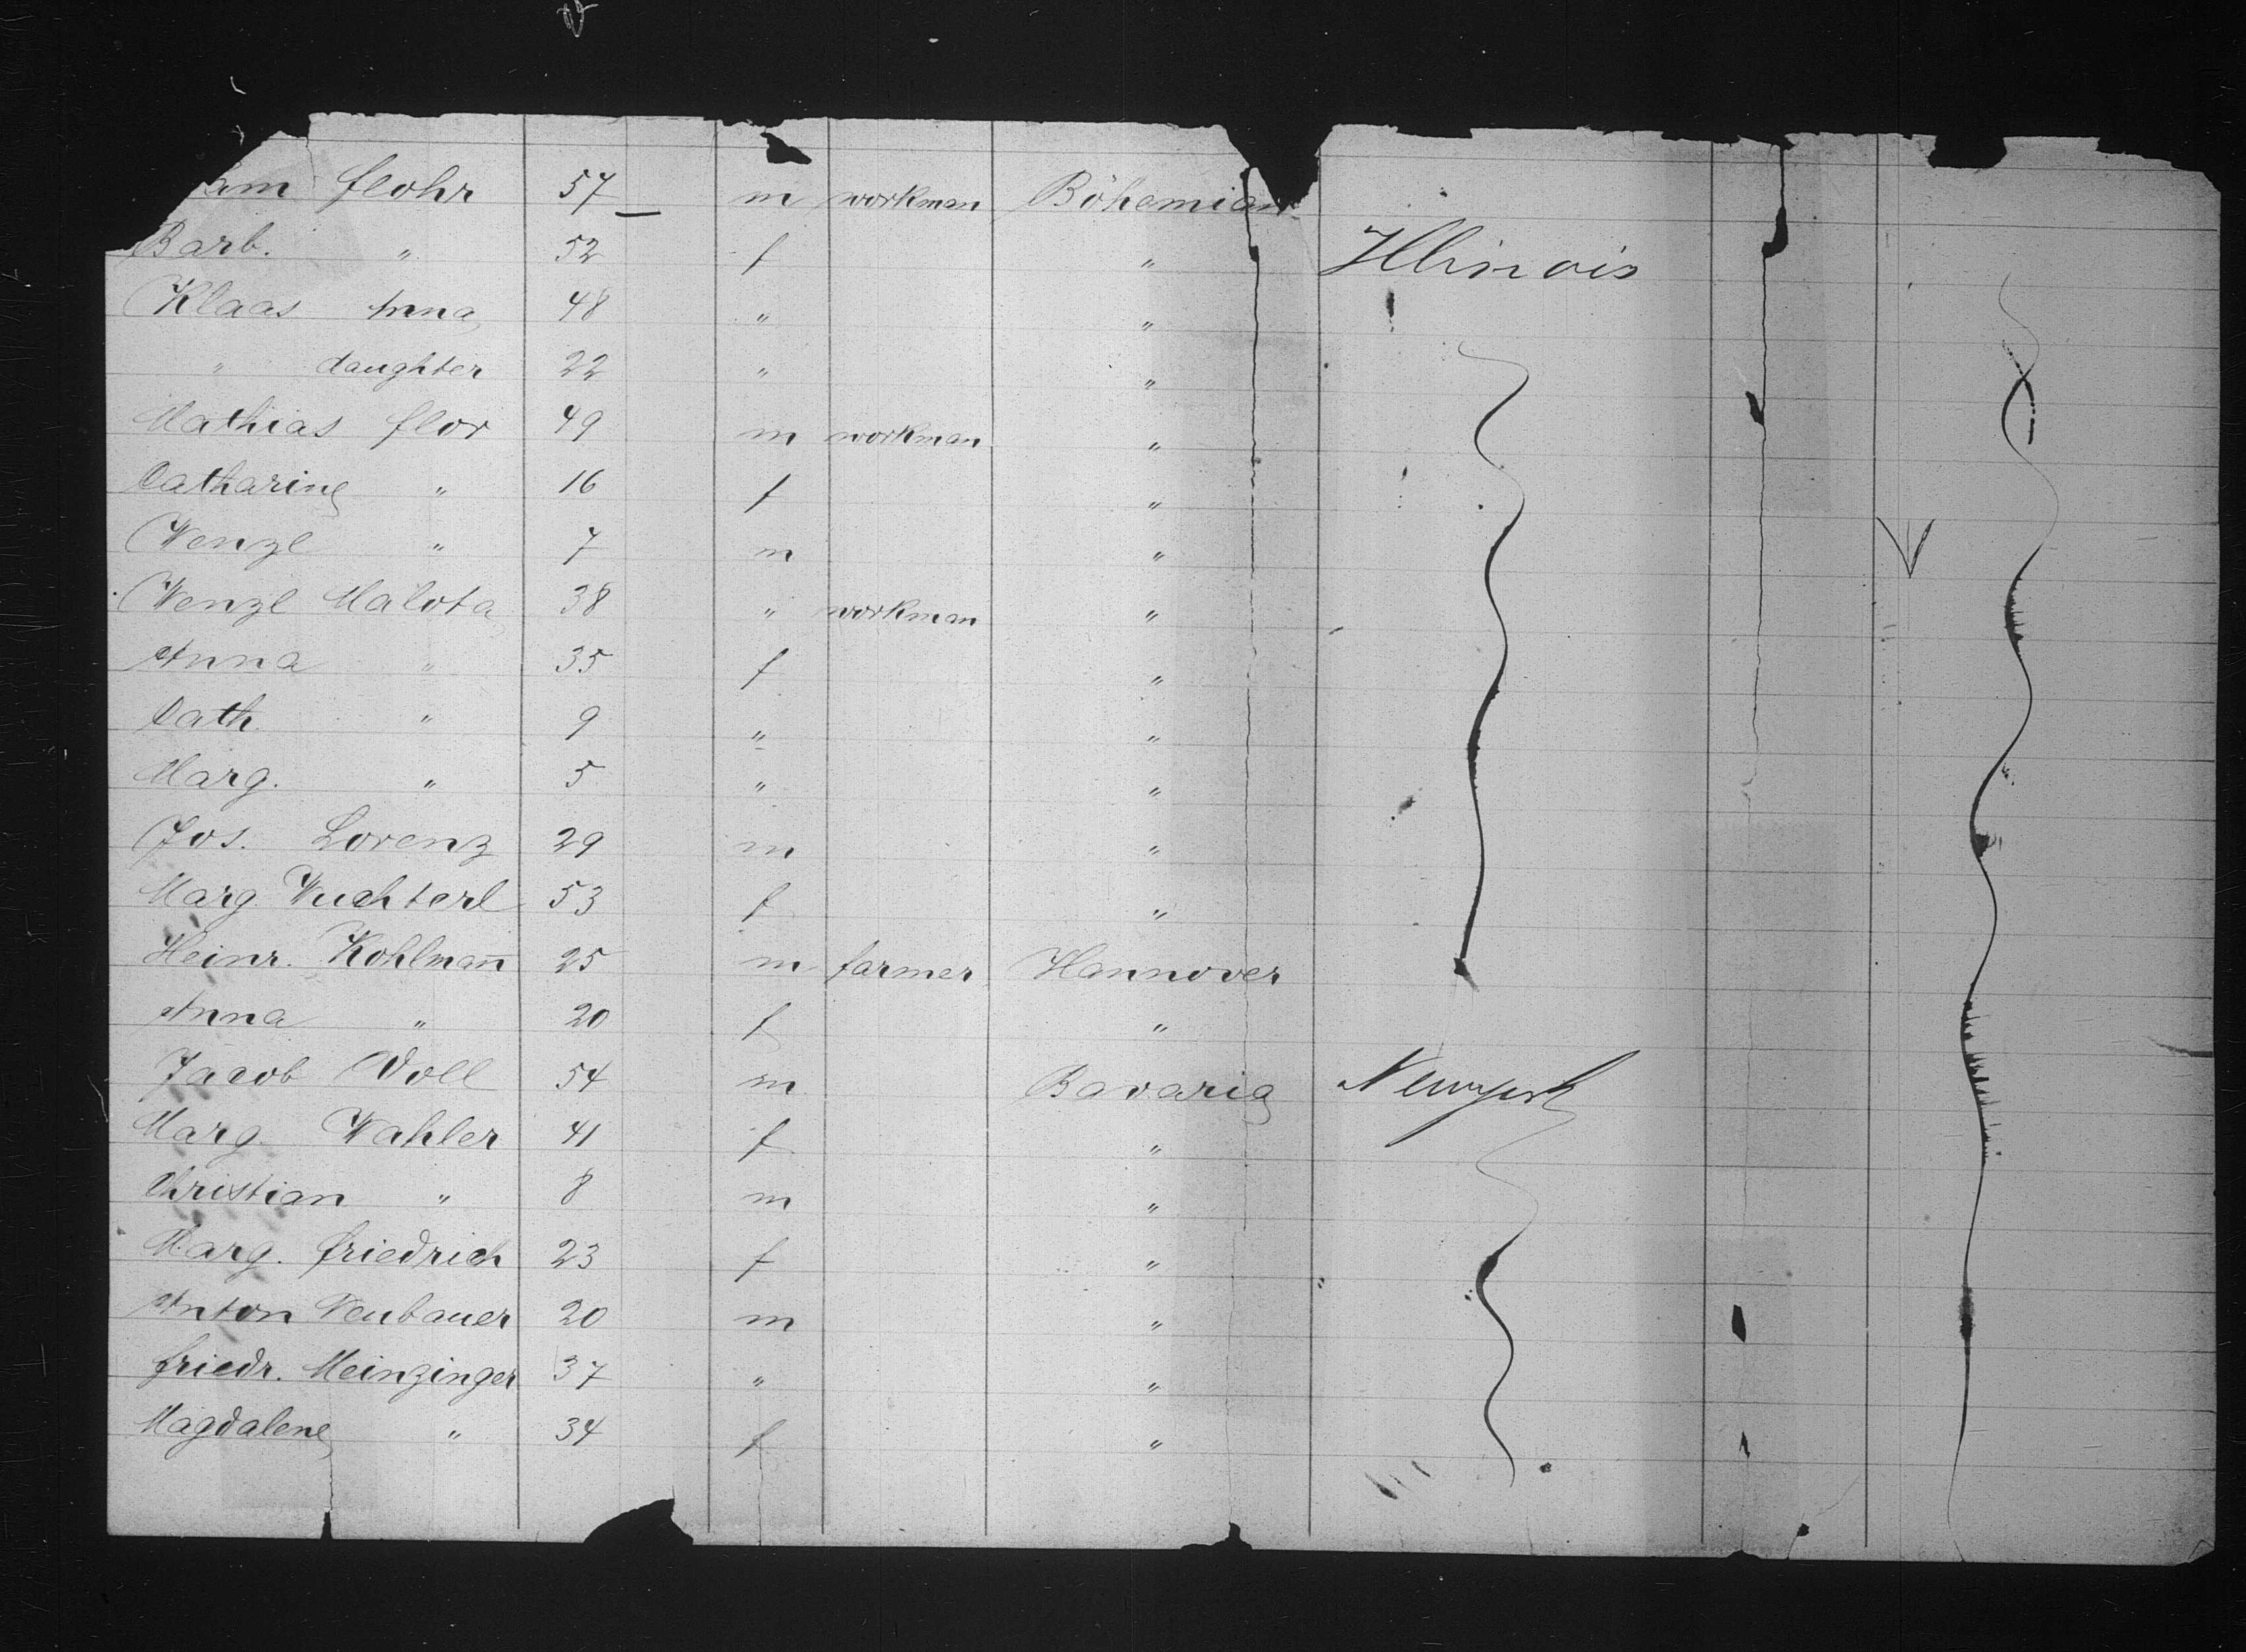 am flohr 57 m workman Böhemian
Barb. " 52 f " Illinois
Klaas Anna 48 " "
" daughter 22 " "
Mathias flor 49 m workman "
Catharine " 16 f "
Wenzl " 7 m "
Wenzl Malota 38 " workman "
Anna " 35 f "
Cath. " 9 " "
Marg. " 5 " "
Jos. Lorenz 29 m "
Marg. Wuchterl 53 f "
Heinr. Kohlmañ 25 m farmer Hannover
Anna " 20 f "
Jacob Doll 54 m Bavaria Newyork
Marg. Wahler 41 f "
Christian " 8 m "
Marg. friedrich 23 f "
Anton Neubauer 20 m "
friedr. Meinzinger 37 " "
Magdalene " 34 f "